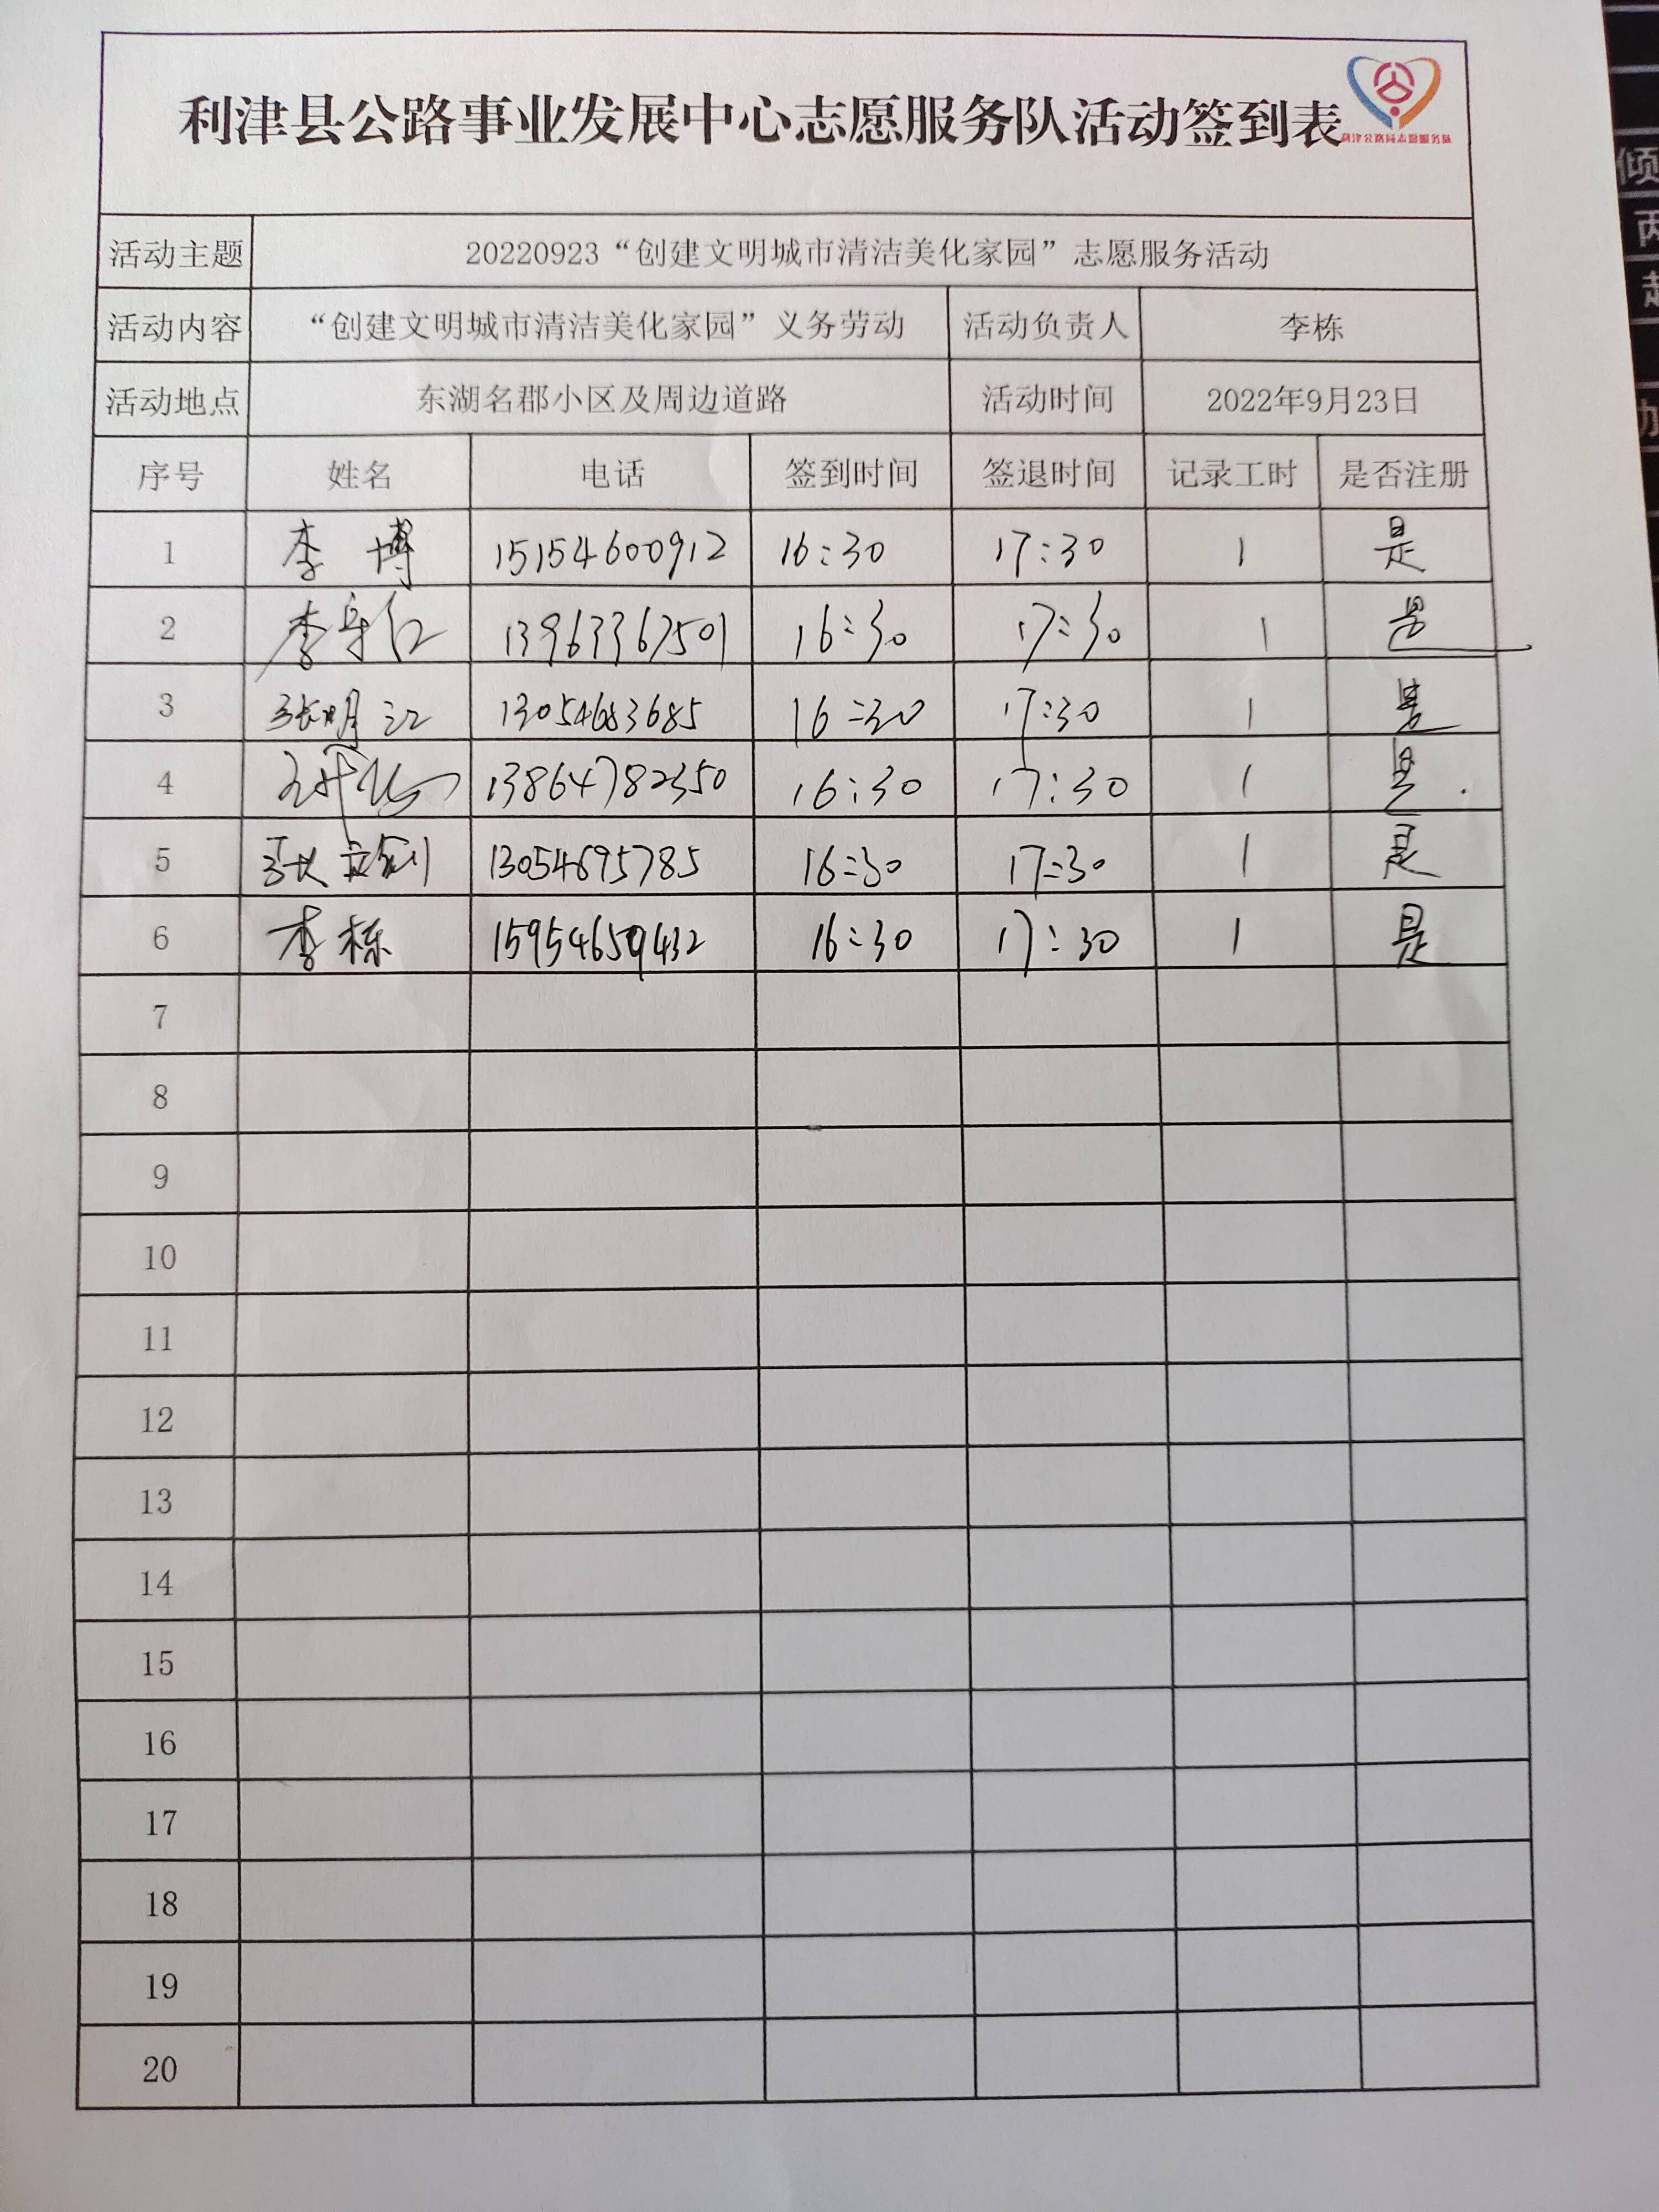 利津县公路事业发展中心志愿服务队活动签到表
利津公路局志愿服务队
活动主题 20220923“创建文明城市清洁美化家园”志愿服务活动
活动内容 “创建文明城市清洁美化家园”义务劳动 活动负责人 李栋
活动地点 东湖名郡小区及周边道路 活动时间 2022年9月23日
序号 姓名 电话 签到时间 签退时间 记录工时 是否注册
1 李博 15154600912 16:30 17:30 1 是
2 13963367501 16:30 17:30 1 是
3 张明江 13054683685 16:30 17:30 1 是
4 13864782350 16:30 17:30 1 是
5 13054695785 16:30 17:30 1 是
6 李栋 15954659432 16:30 17:30 1 是
7
8
9
10
11
12
13
14
15
16
17
18
19
20
倾